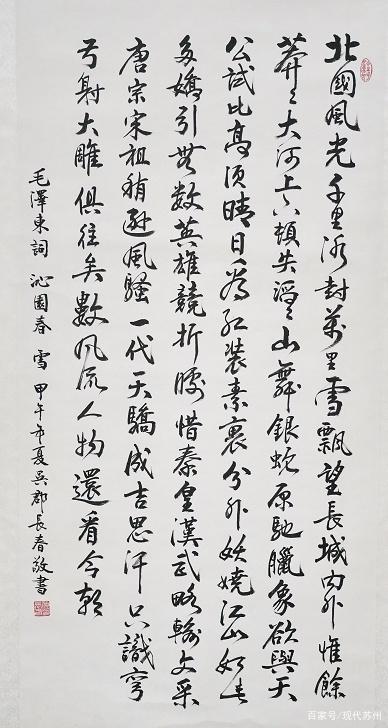 北國風光千里冰封萬里雪飄望長城內外惟餘
莽々大河上下頓失滔々山舞銀蛇原馳臘象欲與天
公試比高須晴日看紅裝素裹分外妖嬈江山如此
多嬌引無數英雄競折腰惜秦皇漢武略輸文采
唐宗宋祖稍遜風騷一代天驕成吉思汗只識彎
弓射大雕俱往矣數風流人物還看今朝
毛澤東詞 沁園春 雪 甲午年夏吳郡長春敬書
百家号/现代苏州